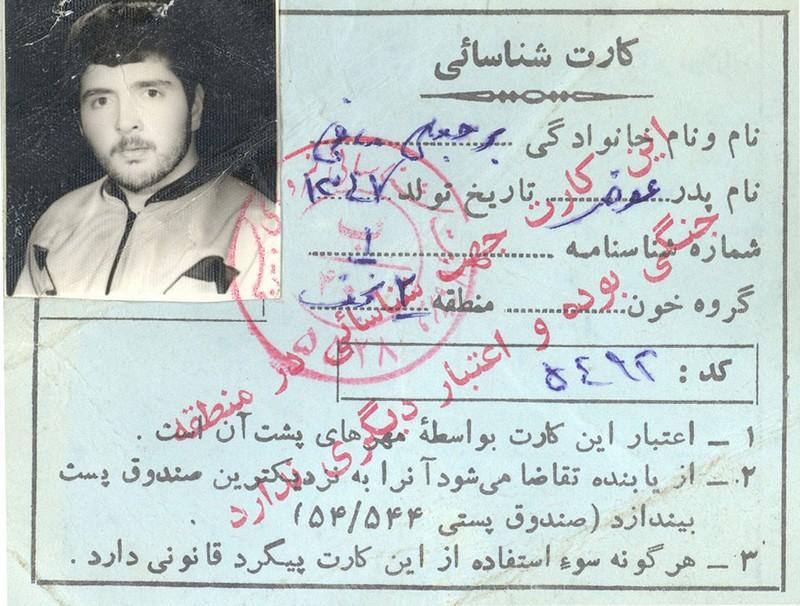 کارت شناسائی
نام و نام خانوادگی
نام پدر عوض تاریخ تولد ۱۳۴۷
شماره شناسنامه ۱
گروه خون منطقه ۲ نجف
کد : ۵۴۹۲
۱ ــ اعتبار این کارت بواسطهٔ مهرهای پشت آن است .
۲ ــ از یابنده تقاضا می‌شود آنرا به نزدیکترین صندوق پست
بیندازد (صندوق پستی ۵۴/۵۴۴)
۳ ــ هرگونه سوء استفاده از این کارت پیگرد قانونی دارد .
این کارت جهت شناسائی در منطقه
جنگی بوده و اعتبار دیگری ندارد